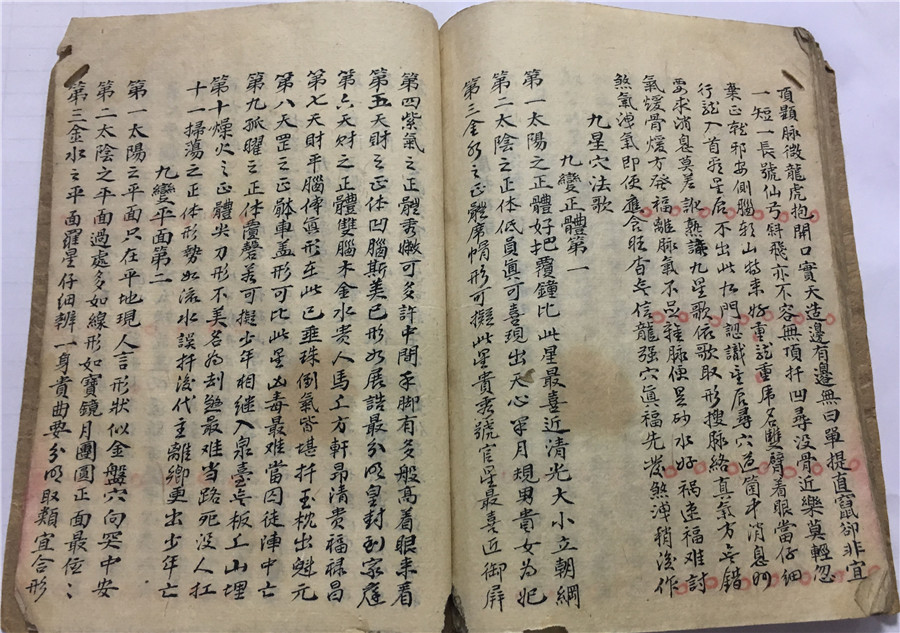 項顆脉微龍虎抱開口實天造邊有邊無曰單提直竄卻非宜
一短一長號仙弓斜飛亦不容無頂扦凹尋沒骨近樂莫輕忽
葉正就邪安側腦形山特來好重說重吊名雙臂着眼當仔細
行說入首看星辰不出此九門認識主居尋穴道箇中消息
要求消息莫差訛熟讀九星歌依歌取形搜脉絡真氣方無錯
氣煖骨煖方發福離脉氣不足離脉便是砂水好禍速福難討
煞氣淖氣即便應含旺杳無信龍強穴真福先發煞淖稍後作
九星穴法歌
九變正體第一
第一太陽之正體好把覆鐘比此星最喜近清光大小立朝綱
第二太陰之正体低員真可喜現出天心半月規男貴女為妃
第三金水之正體摩帽形可擬此星貴秀號官星最喜近御屏
第四紫氣之正體秀嫩可多許中間手脚有多般高着眼來看
第五天財之正体凹腦斯美已形如展誥最分明皇封到家庭
第六天财之正體雙腦木金水貴人馬上方軒昂清貴福祿昌
第七天財平腦体真形在此已垂珠倒氣皆堪扦玉枕出魁元
第八天罡之正體車盖形可比此星凶毒最难當囚徒陣中亡
第九孤曜之正体覆磬差可擬少年相继入泉臺無板上山埋
第十燥火之正體尖刀形不美名為刦煞最难当路死没人扛
十一掃蕩之正体形勢如流水誤扦後代主離鄉更出少年亡
九變平面第二
第一太陽之平面只在平地現人言形狀似金盤穴向突中安
第二太陰之平面過處多如線形如寶鏡月團圓正面最位〻
第三金水之平面羅星仔細辨一身貴曲要分明取類宜合形